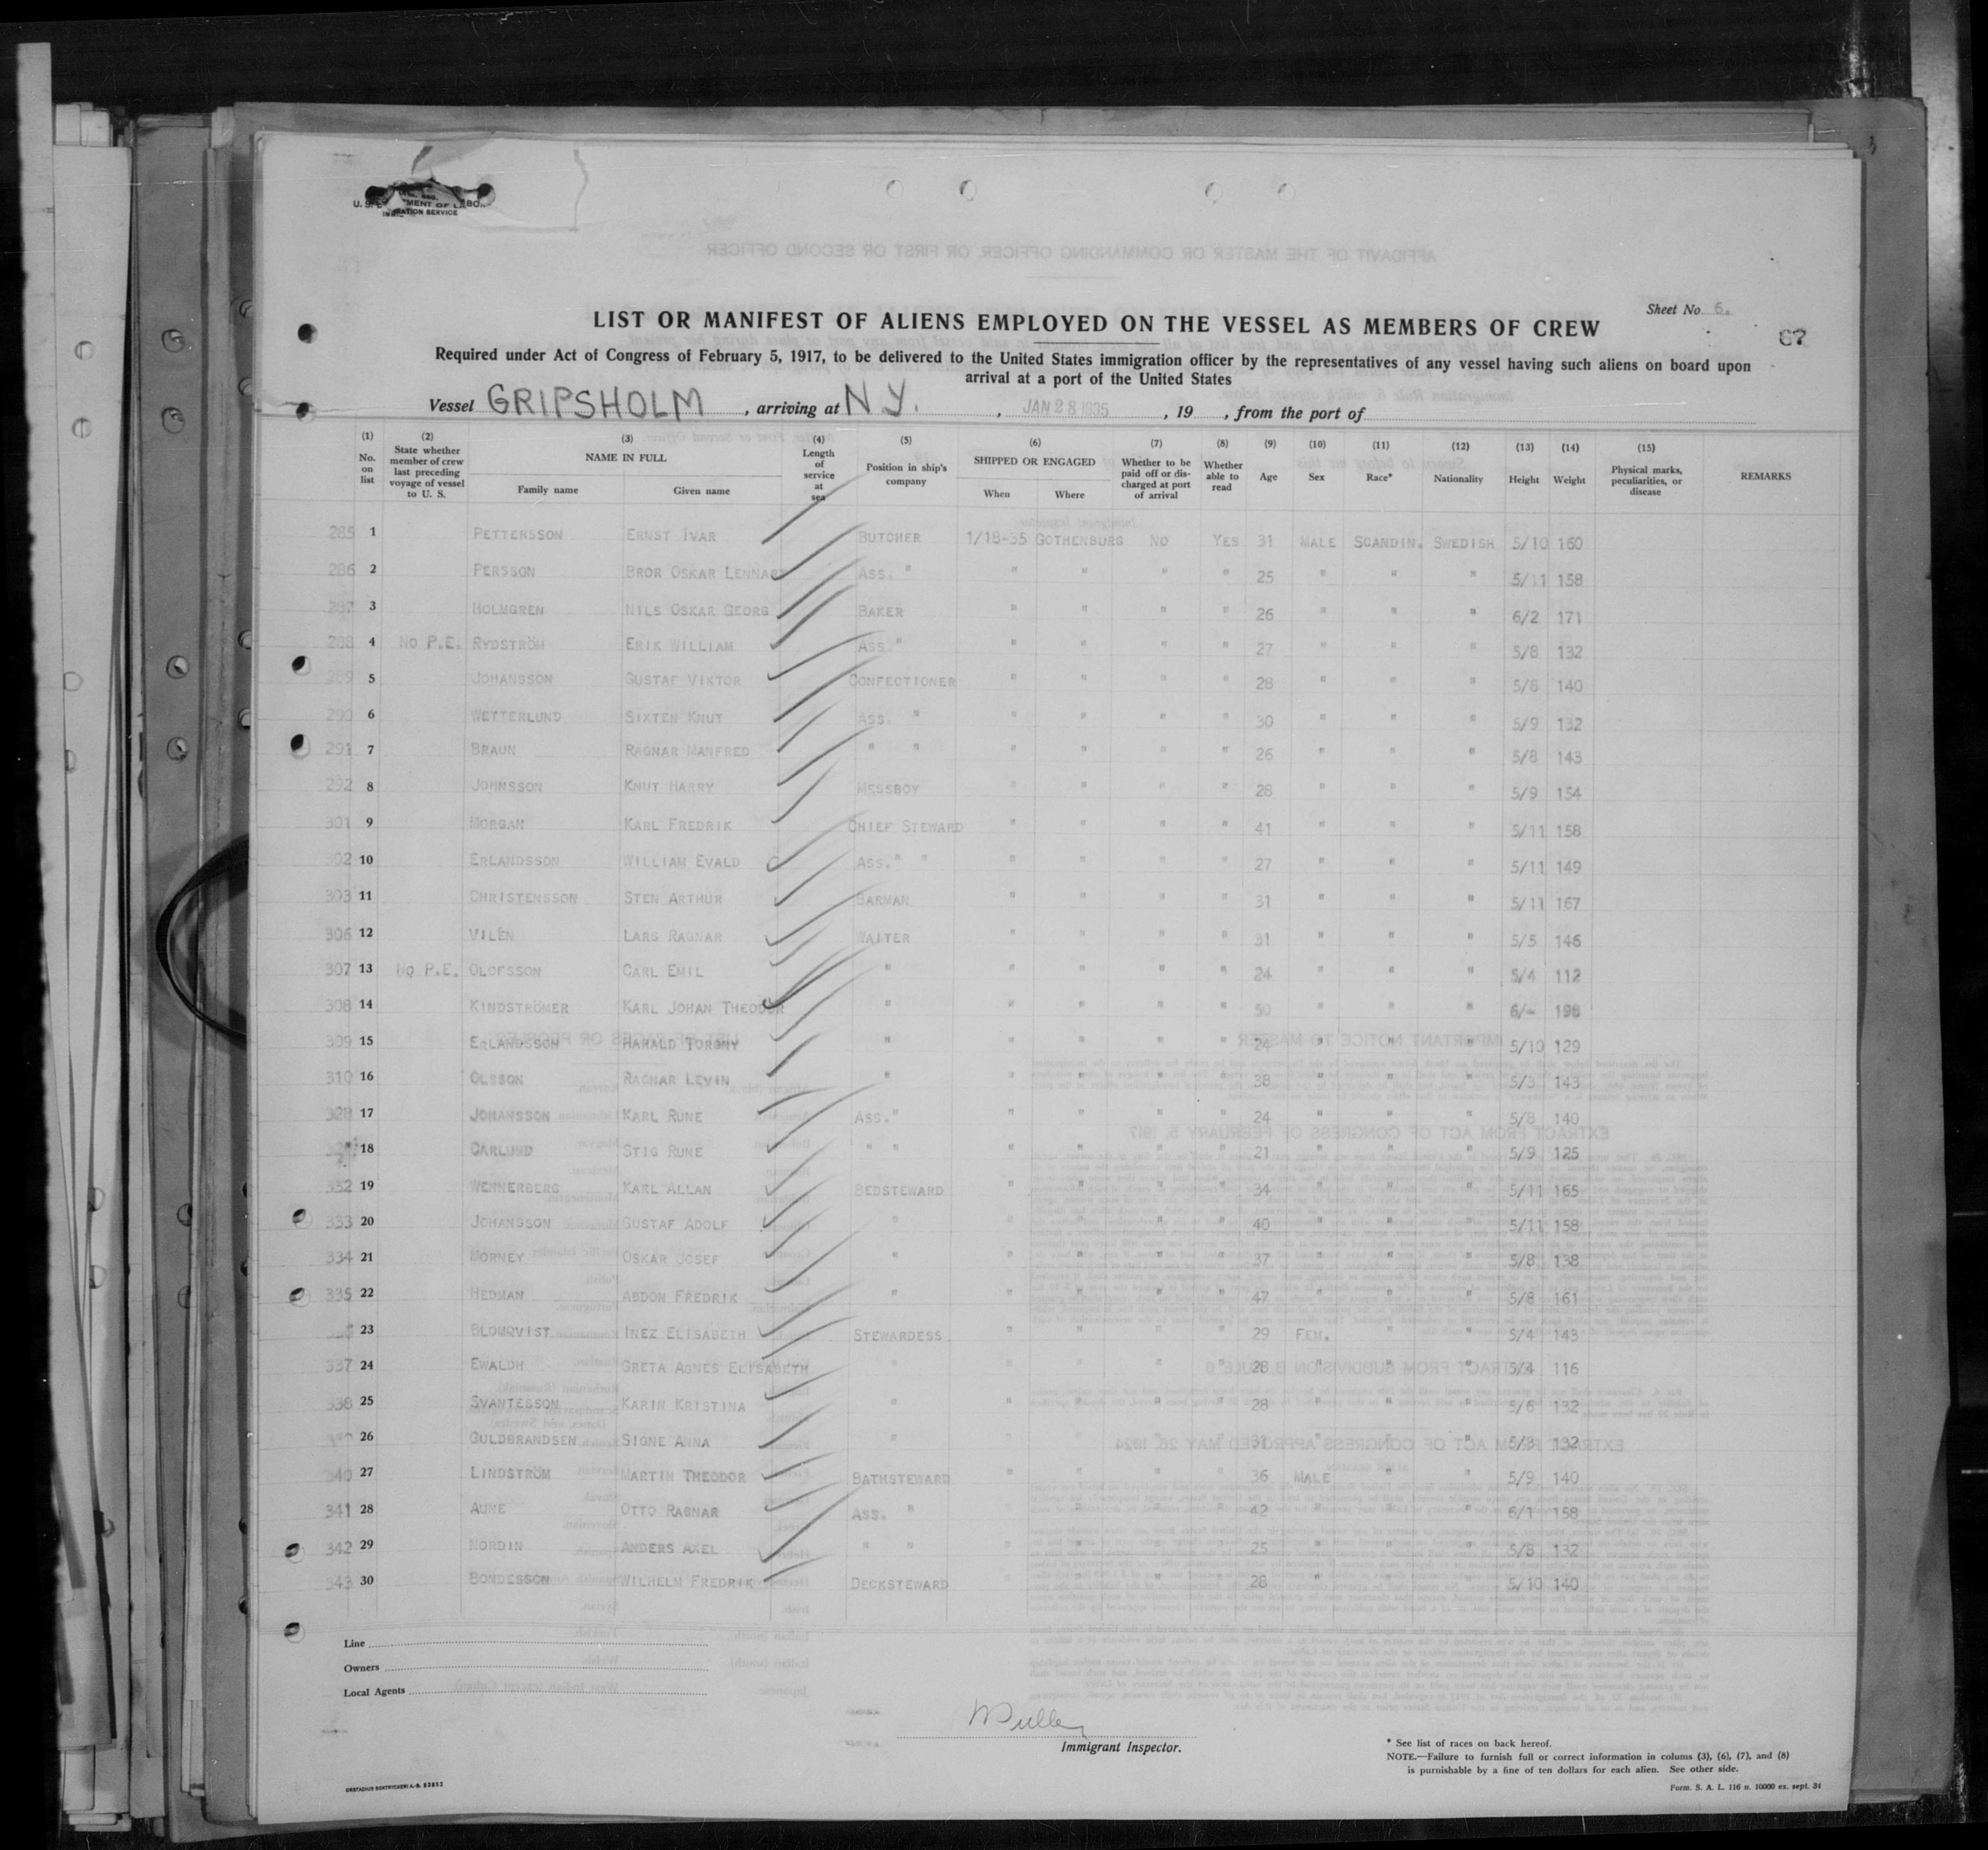 U. S. MENT OF LABOR
IMMIGRATION SERVICE
Sheet No. 6.
LIST OR MANIFEST OF ALIENS EMPLOYED ON THE VESSEL AS MEMBERS OF CREW
67
Required under Act of Congress of February 5, 1917, to be delivered to the United States immigration officer by the representatives of any vessel having such aliens on board upon
arrival at a port of the United States
Vessel GRIPSHOLM, arriving at N.Y., JAN 28 1935, 19, from the port of
(1) No. on list (2) State whether member of crew last preceding voyage of vessel to U. S. (3) NAME IN FULL Family name Given name (4) Length of service at sea (5) Position in ship's company (6) SHIPPED OR ENGAGED When Where (7) Whether to be paid off or discharged at port of arrival (8) Whether able to read (9) Age (10) Sex (11) Race* (12) Nationality (13) Height (14) Weight (15) Physical marks, peculiarities, or disease REMARKS
285 1 PETTERSSON ERNST IVAR BUTCHER 1/18-35 GOTHENBURG NO YES 31 MALE SCANDIN. SWEDISH 5/10 160
286 2 PERSSON BROR OSKAR LENNART ASS. " " " " " 25 " " " 5/11 158
287 3 HOLMGREN NILS OSKAR GEORG BAKER " " " " 26 " " " 6/2 171
288 4 NO P.E. RYDSTRÖM ERIK WILLIAM ASS." " " " " 27 " " " 5/8 132
289 5 JOHANSSON GUSTAF VIKTOR CONFECTIONER " " " " 28 " " " 5/8 140
290 6 WETTERLUND SIXTEN KNUT ASS. " " " " " 30 " " " 5/9 132
291 7 BRAUN RAGNAR MANFRED " " " " " " 26 " " " 5/8 143
292 8 JOHNSSON KNUT HARRY MESSBOY " " " " 28 " " " 5/9 154
301 9 MORGAN KARL FREDRIK CHIEF STEWARD " " " " 41 " " " 5/11 158
302 10 ERLANDSSON WILLIAM EVALD ASS." " " " " " 27 " " " 5/11 149
303 11 CHRISTENSSON STEN ARTHUR BARMAN " " " " 31 " " " 5/11 167
306 12 VILÉN LARS RAGNAR WAITER " " " " 31 " " " 5/5 146
307 13 NO P.E. OLOFSSON CARL EMIL " " " " " 24 " " " 5/4 112
308 14 KINDSTRÖMER KARL JOHAN THEODOR " " " " " 50 " " " 6/- 198
309 15 ERLANDSSON HARALD TORGNY " " " " " 24 " " " 5/10 129
310 16 OLSSON RAGNAR LEVIN " " " " " 38 " " " 5/3 143
328 17 JOHANSSON KARL RUNE ASS." " " " " 24 " " " 5/8 140
18 CARLUND STIG RUNE " " " " " " 21 " " " 5/9 125
332 19 WENNERBERG KARL ALLAN BEDSTEWARD " " " " 34 " " " 5/11 165
333 20 JOHANSSON GUSTAF ADOLF " " " " " 40 " " " 5/11 158
334 21 MORNEY OSKAR JOSEF " " " " " 37 " " " 5/8 138
335 22 HEDMAN ABDON FREDRIK " " " " " 47 " " " 5/8 161
23 BLOMQVIST INEZ ELISABETH STEWARDESS " " " " 29 FEM. " " 5/4 143
337 24 EWALDH GRETA AGNES ELISABETH " " " " " 28 " " " 5/4 116
338 25 SVANTESSON KARIN KRISTINA " " " " " 28 " " " 5/6 132
26 GULDBRANDSEN SIGNE ANNA " " " " " 31 " " " 5/8 132
340 27 LINDSTRÖM MARTIN THEODOR BATHSTEWARD " " " " 36 MALE " " 5/9 140
341 28 AUNE OTTO RAGNAR ASS. " " " " " 42 " " " 6/1 158
342 29 NORDIN ANDERS AXEL " " " " " " 25 " " " 5/8 132
343 30 BONDESSON WILHELM FREDRIK DECKSTEWARD " " " " 28 " " " 5/10 140
Line
Owners
Local Agents
Immigrant Inspector.
* See list of races on back hereof.
NOTE.—Failure to furnish full or correct information in colums (3), (6), (7), and (8)
is punishable by a fine of ten dollars for each alien. See other side.
Form. S. A. L. 116 n. 10000 ex. sept. 34